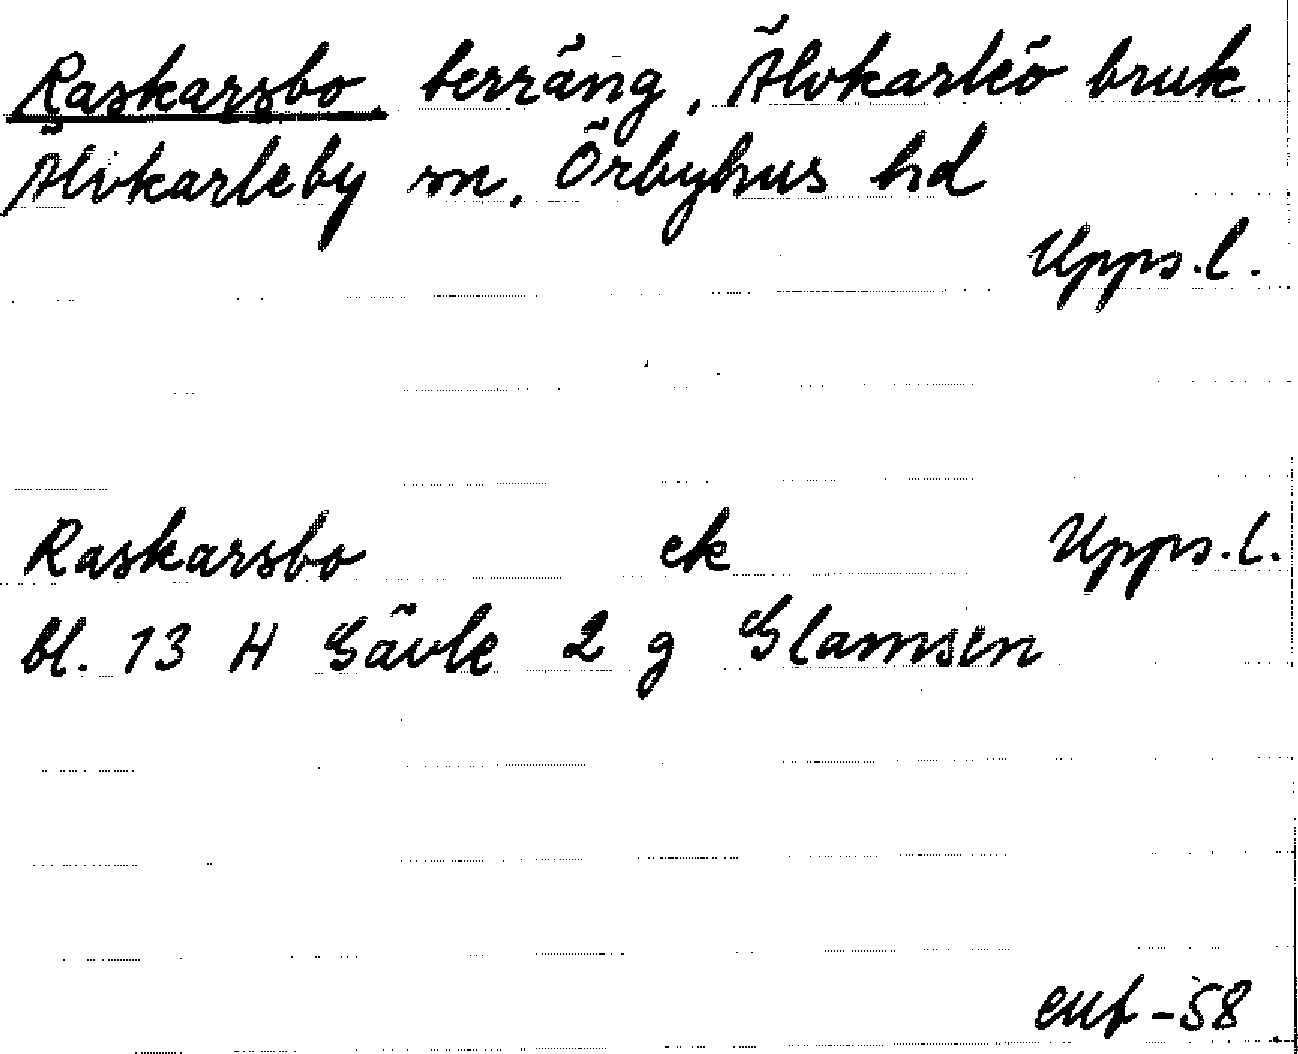 Raskarsbo, terräng, Älvkarleö bruk
Älvkarleby sn, Örbyhus hd
Upps.l.
Raskarsbo ek Upps.l.
bl. 13 H Gävle 2 g Glamsen
-58